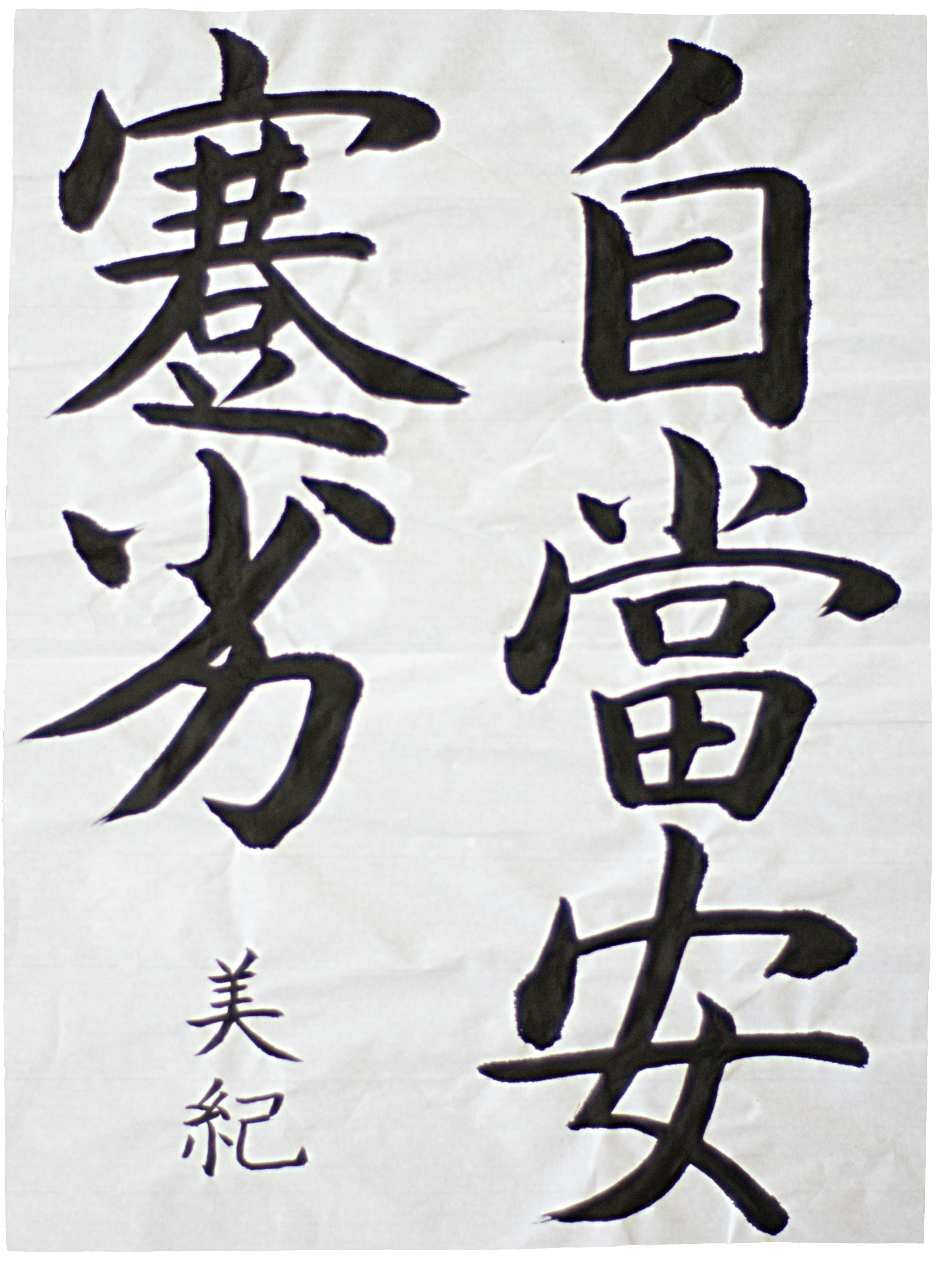 自當安
蹇劣
美紀